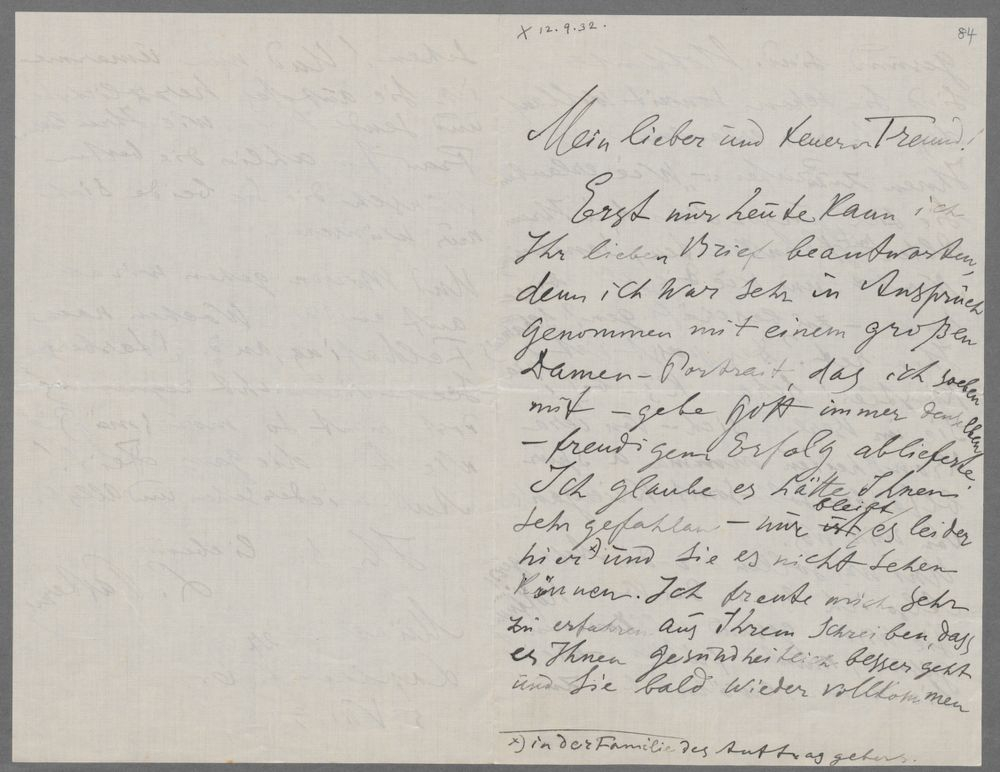 x 12.9.32.
84
Mein lieber und teuerer Freund!
Erst nur heute kann ich
Ihr lieben Brief beantworten,
denn ich war sehr in Anspruch
genommen mit einem großen
Damen-Portrait, das ich soeben
mit – gebe Gott immer denselben
– freudigem Erfolg ablieferte.
Ich glaube es hätte Ihnen
sehr gefahlen – nur ist bleibt es leider
hier x) und Sie es nicht sehen
können. Ich freute mich sehr
zu erfahren aus Ihrem Schreiben, dass
es Ihnen gesundheitlich besser geht
und Sie bald wieder vollkommen
x) in der Familie des Auftraggebers.